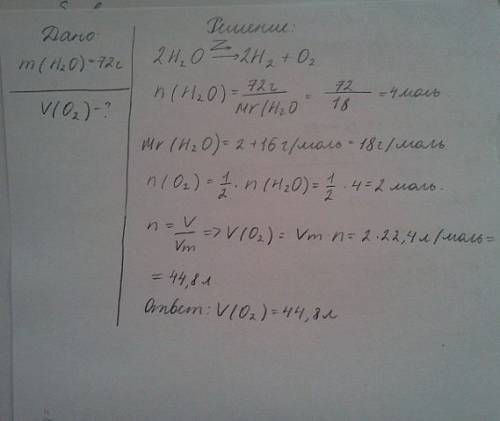 Дано:
m(H₂O)=72г
V(O₂)-?
Решение:
2H₂O → 2H₂ + O₂
n(H₂O) = 72г / Mr(H₂O = 72 / 18 = 4моль.
Mr(H₂O) = 2+16 г/моль = 18г/моль
n(O₂) = 1/2 · n(H₂O) = 1/2 · 4 = 2 моль.
n = V/Vm => V(O₂) = Vm·n = 2·22,4 л/моль =
= 44,8 л
Ответ: V(O₂) = 44,8 л